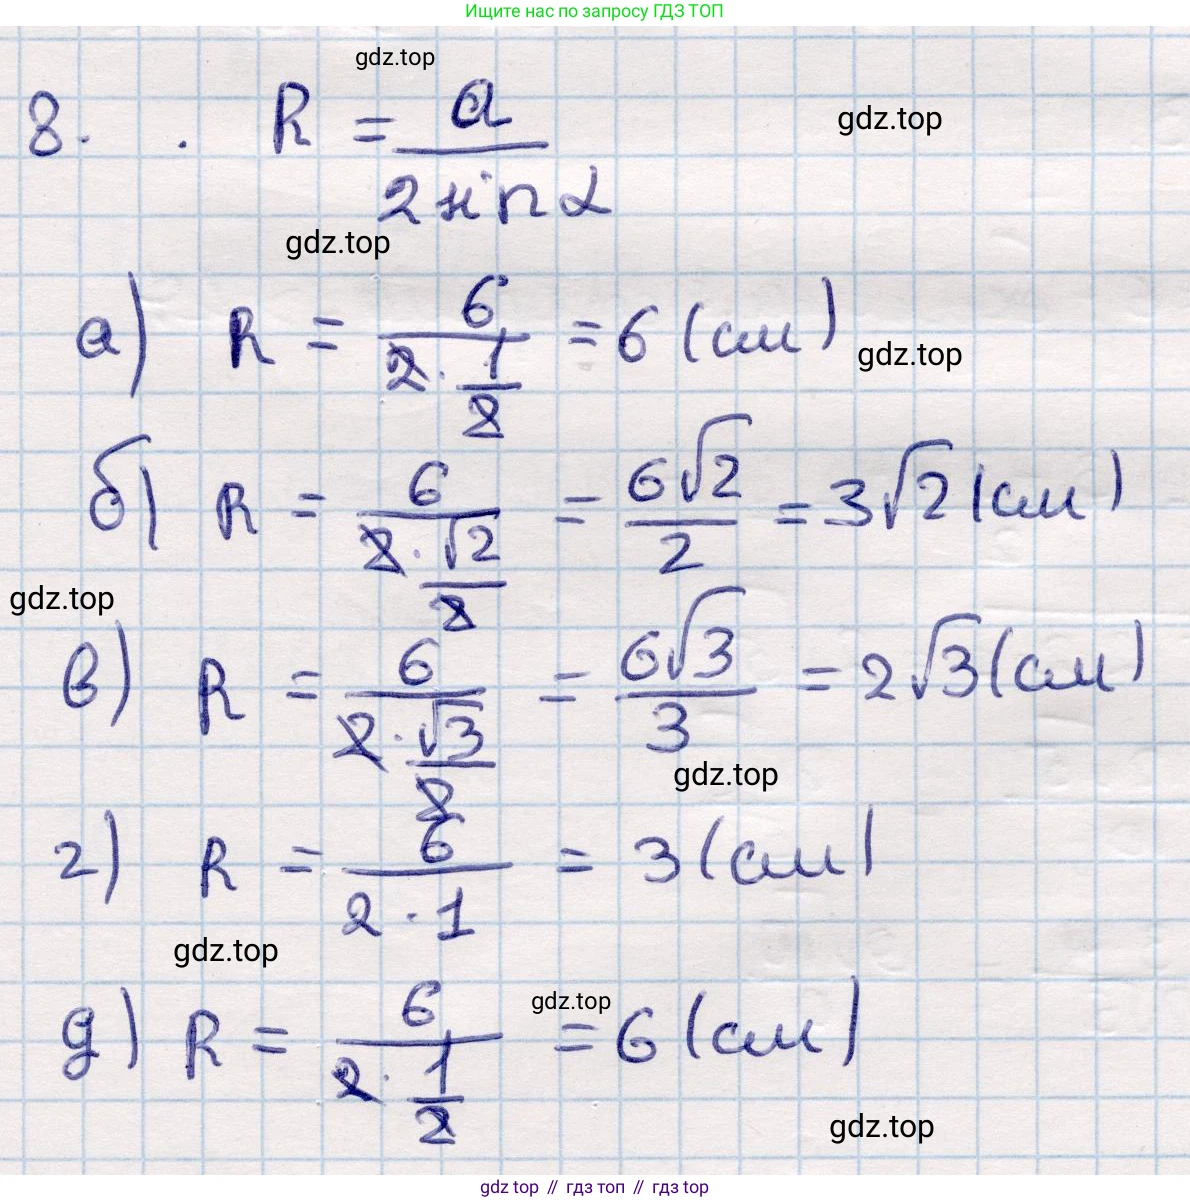 Ищите нас по запросу ГДЗ ТОП
gdz.top
8. . R = a / (2 sin α)
gdz.top
gdz.top
а) R = 6 / (2 · 1/2) = 6 (см)
gdz.top
б) R = 6 / (2 · √2/2) = 6√2 / 2 = 3√2 (см)
gdz.top
в) R = 6 / (2 · √3/2) = 6√3 / 3 = 2√3 (см)
gdz.top
г) R = 6 / (2 · 1) = 3 (см)
gdz.top
gdz.top
д) R = 6 / (2 · 1/2) = 6 (см)
gdz.top
gdz top // гдз топ // гдз top